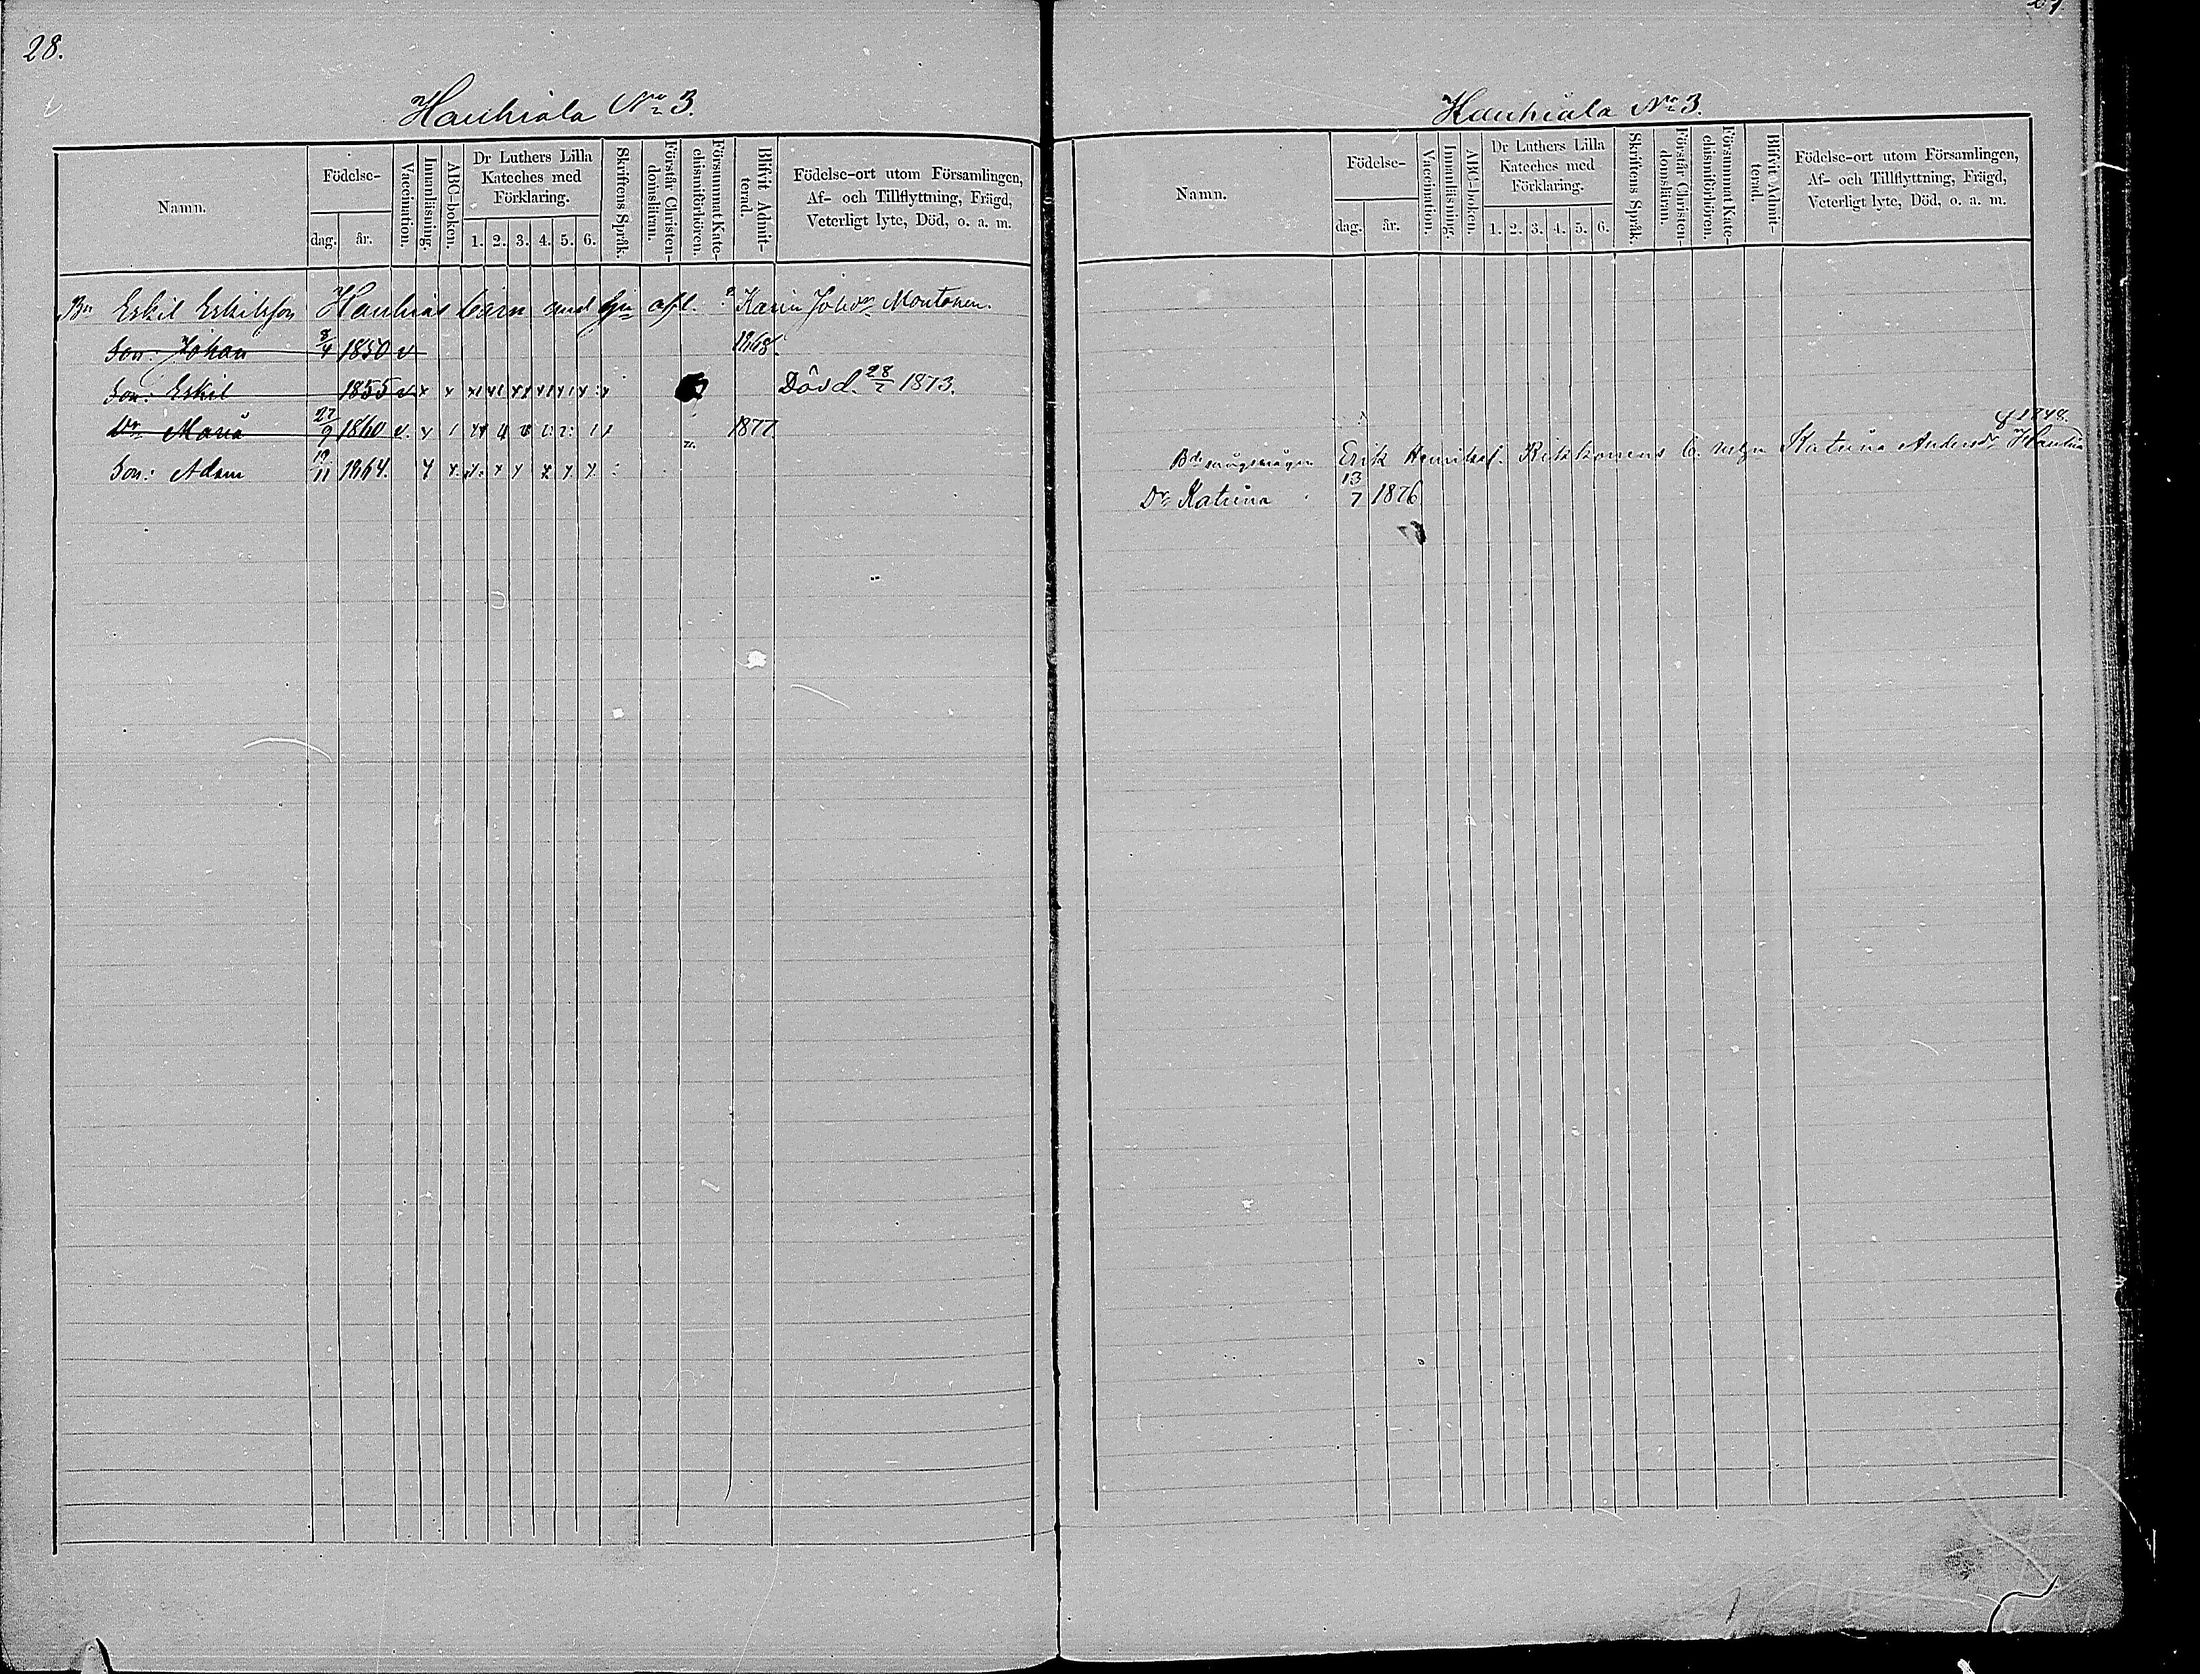 28.
Hauhiala No 3.
Namn.
Födelse-
dag.
år.
Vaccination.
Innanläsning.
ABC-boken.
Dr Luthers Lilla
Kateches med
Förklaring.
1. 2. 3. 4. 5. 6.
Skriftens Språk.
Förstår Christen-
domsläran.
Försummat Kate-
chismiförhören.
Blifvit Admit-
terad.
Födelse-ort utom Församlingen,
Af- och Tillflyttning, Frägd,
Veterligt lyte, Död, o. a. m.
Bn Eskil Eskilsson Hauhias barn med Karin Johdr Montonen.
Son: Johan 8/4 1850 v 1868.
Son: Eskil 1855 v x x Död d. 28/2 1873.
Dr Maria 27/9 1860 v. x 1877
Son: Adam 19/11 1864. x x
Hauhiala No 3.
Namn.
Födelse-
dag.
år.
Vaccination.
Innanläsning.
ABC-boken.
Dr Luthers Lilla
Kateches med
Förklaring.
1. 2. 3. 4. 5. 6.
Skriftens Språk.
Förstår Christen-
domsläran.
Försummat Kate-
chismiförhören.
Blifvit Admit-
terad.
Födelse-ort utom Församlingen,
Af- och Tillflyttning, Frägd,
Veterligt lyte, Död, o. a. m.
1848.
Erik Henriksf. b. Katrina Andersdr Hauhia
Dr Katrina 13/7 1876